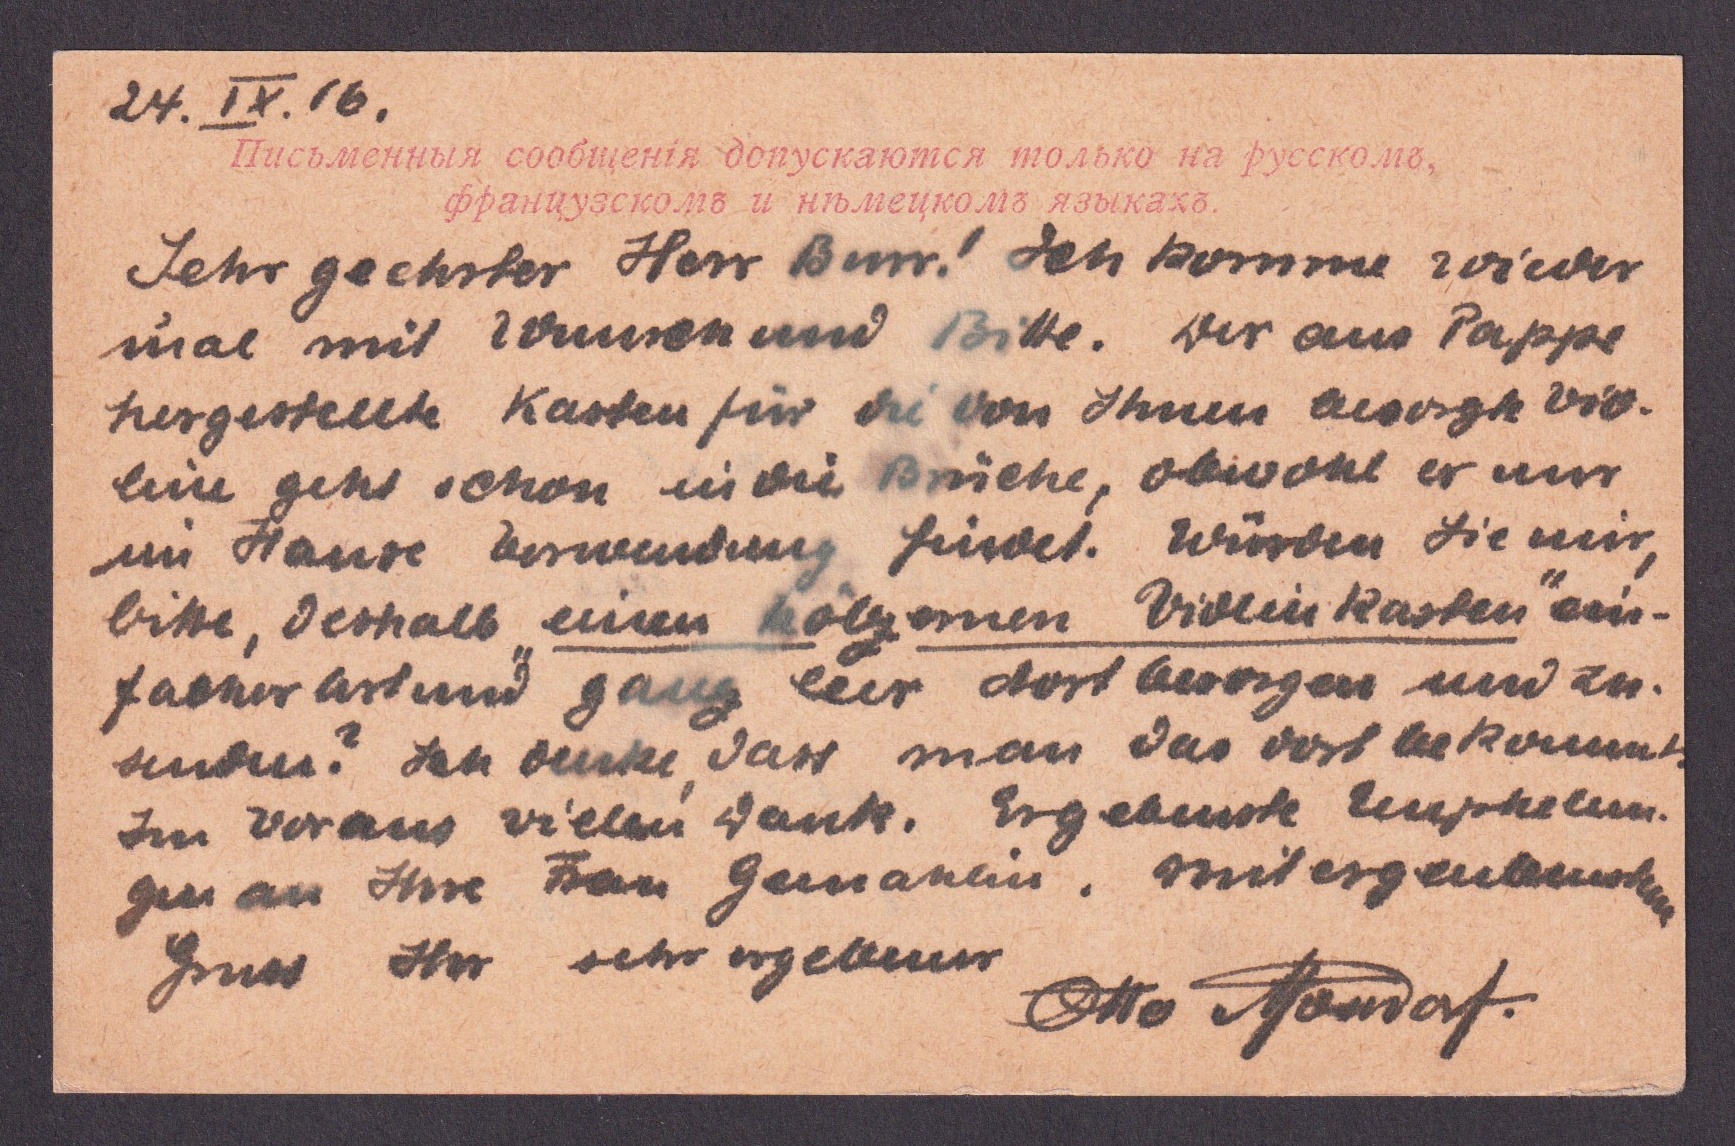 24. IX. 16.
Письменныя сообщенія допускаются только на русскомъ,
французскомъ и нѣмецкомъ языкахъ.
Sehr geehrter Herr Burr! Ich komme wieder
mal mit Wunsch und Bitte. Der aus Pappe
hergestellte Kasten für die von Ihnen besorgte Vio-
line geht schon in die Brüche, obwohl er nur
im Hause Verwendung findet. Würden Sie mir,
bitte, deshalb „einen hölzernen Violinkasten" ein-
facher Art und ganz leer dort besorgen und zu-
senden? Ich denke, dass man das dort bekommt.
Im Voraus vielen Dank. Ergebenste Empfehlun-
gen an Ihre Frau Gemahlin. Mit ergenbensten
Gruss Ihr sehr ergebener
Otto